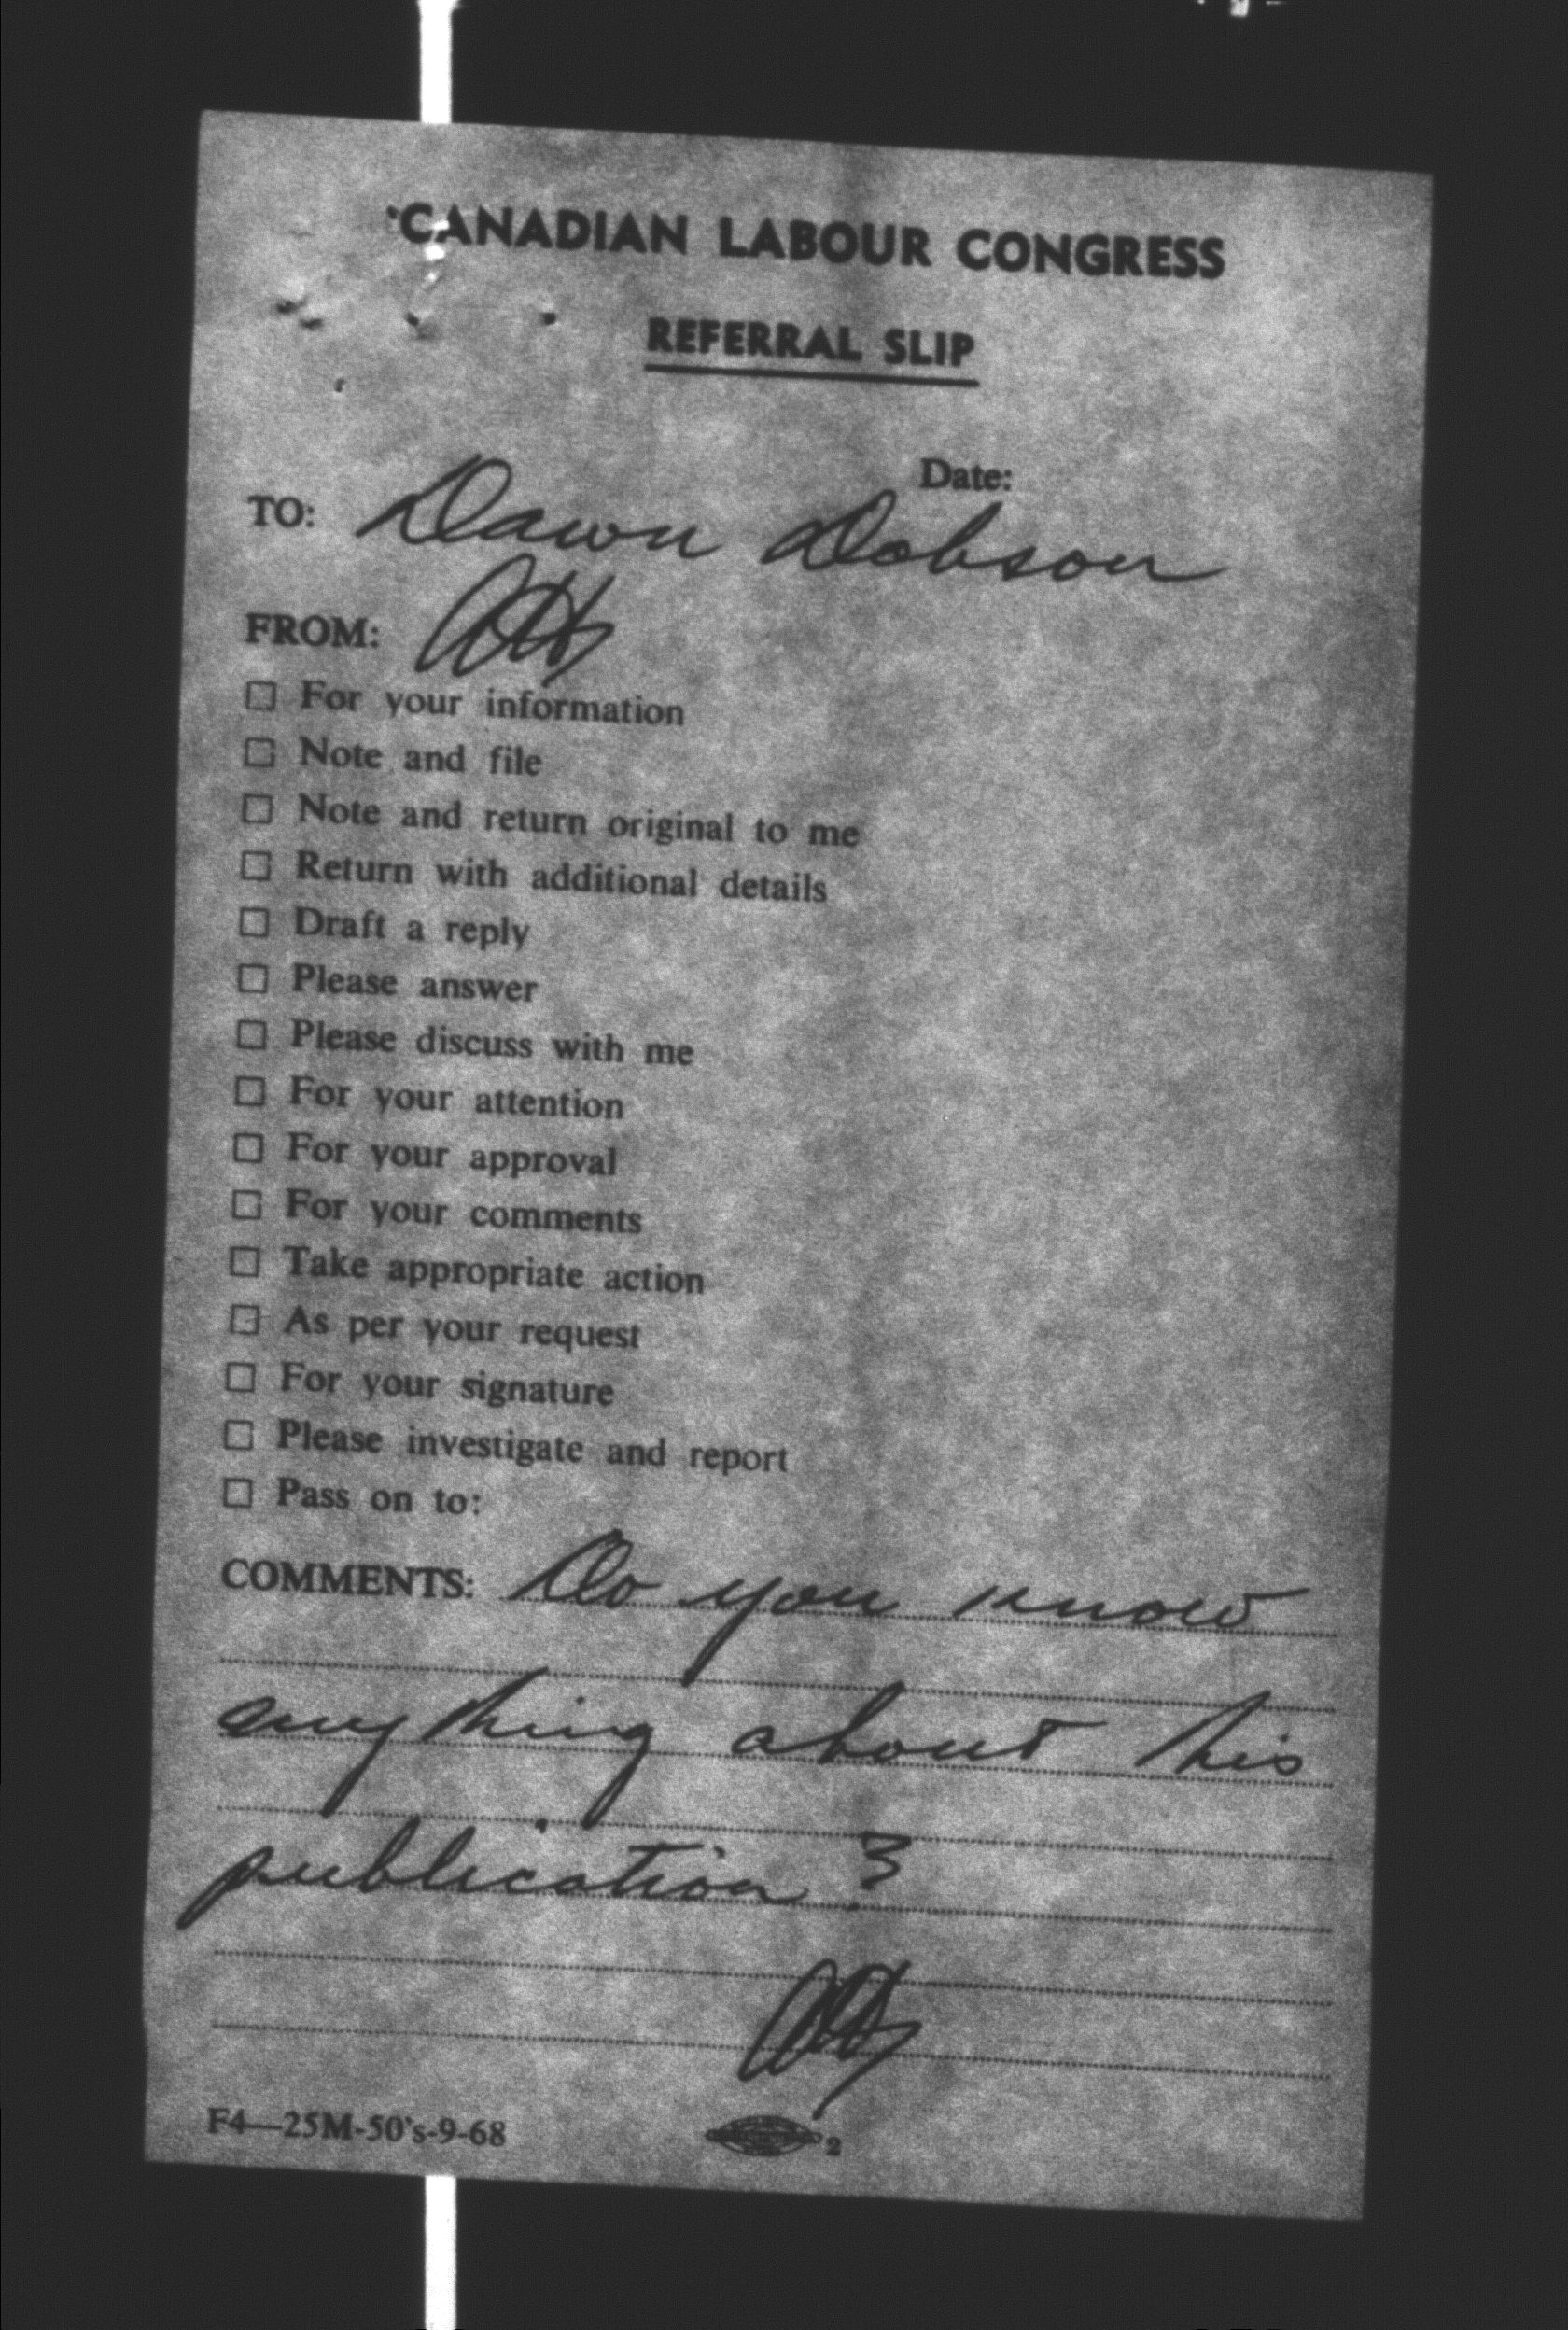 CANADIAN LABOUR CONGRESS
REFERRAL SLIP
Date:
TO: Dawn Dobson
FROM:
☐ For your information
☐ Note and file
☐ Note and return original to me
☐ Return with additional details
☐ Draft a reply
☐ Please answer
☐ Please discuss with me
☐ For your attention
☐ For your approval
☐ For your comments
☐ Take appropriate action
☐ As per your request
☐ For your signature
☐ Please investigate and report
☐ Pass on to:
COMMENTS: Do you know
anything about this
publication?
F4—25M-50's-9-68
2